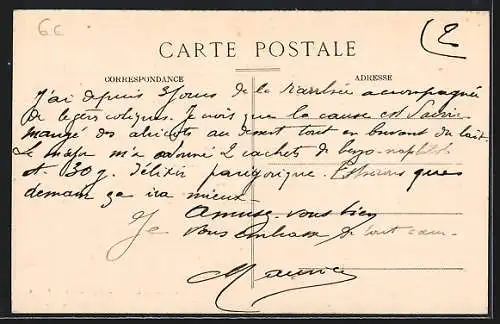 6c
2
CARTE POSTALE
CORRESPONDANCE
ADRESSE
J'ai depuis 3 jours de la diarrhée accompagnée
de légères coliques. Je crois que la cause est d'avoir
mangé des abricots au dessert tout en buvant du lait.
Le major m'a ordonné 2 cachets de benzo-naphtol
et 30 g. d'élixir parégorique. Espérons que
demain ça ira mieux.
Amusez-vous bien
Je vous embrasse de tout cœur.
Maurice